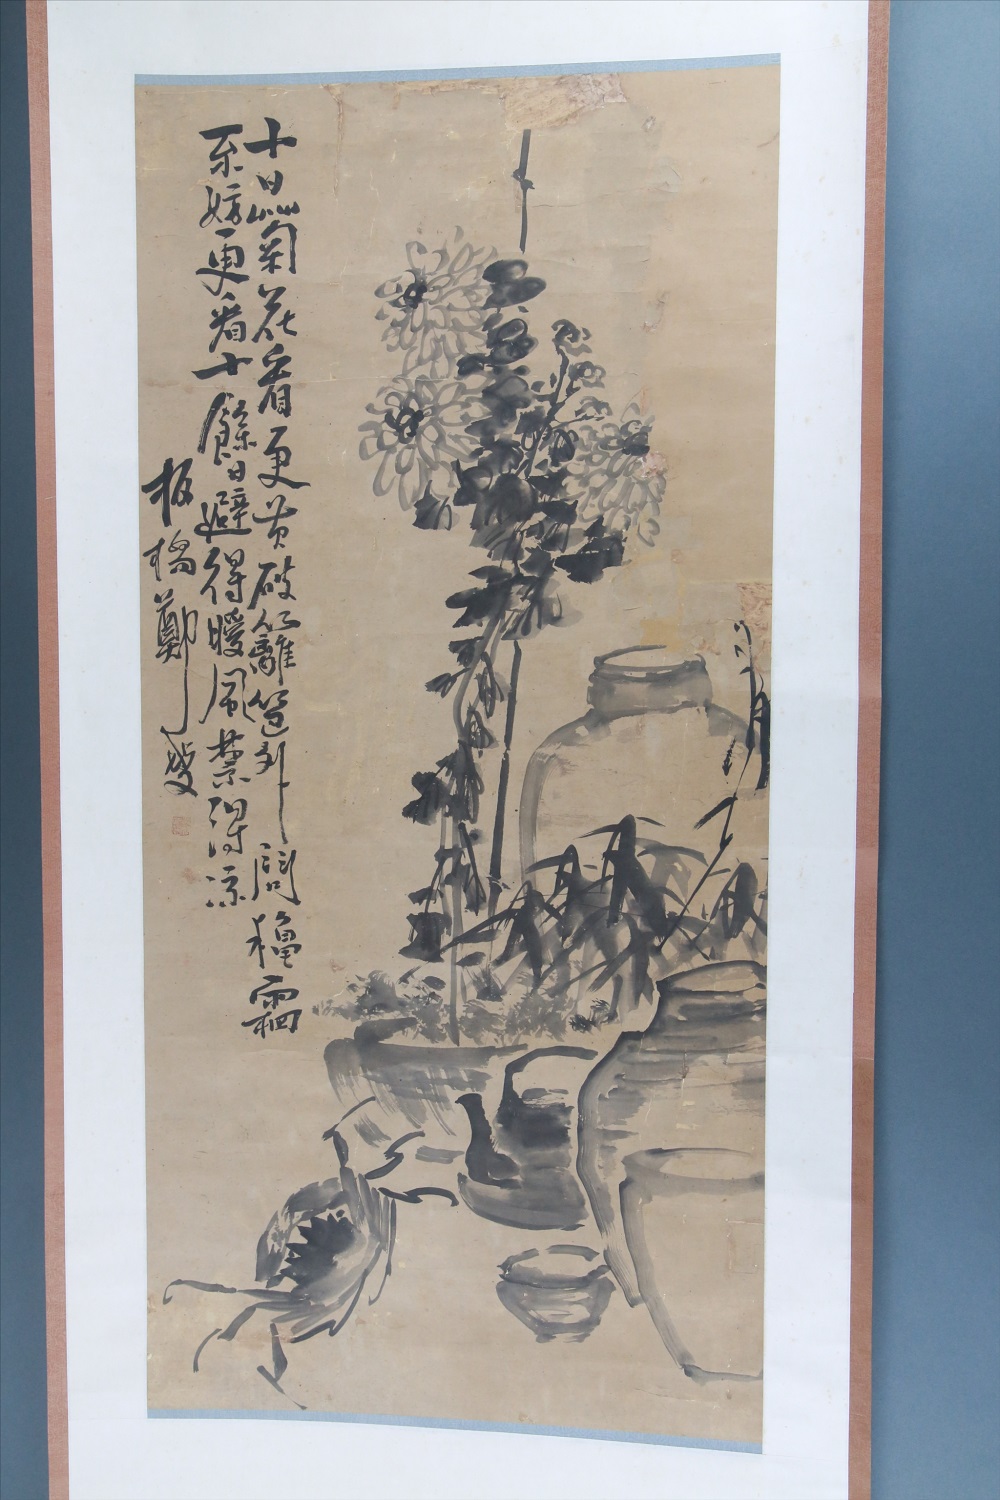 十日菊花看更黄破籬笆外鬥穠霜
不妨更看十餘日避得暖風禁得涼
板橋鄭燮